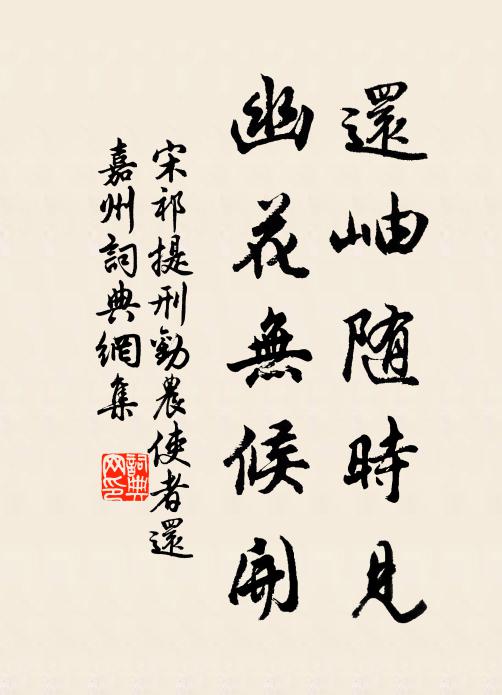 還岫随時見
幽花無候開
宋祁提刑勸農使者還
嘉州詞典網集
詞典
网印